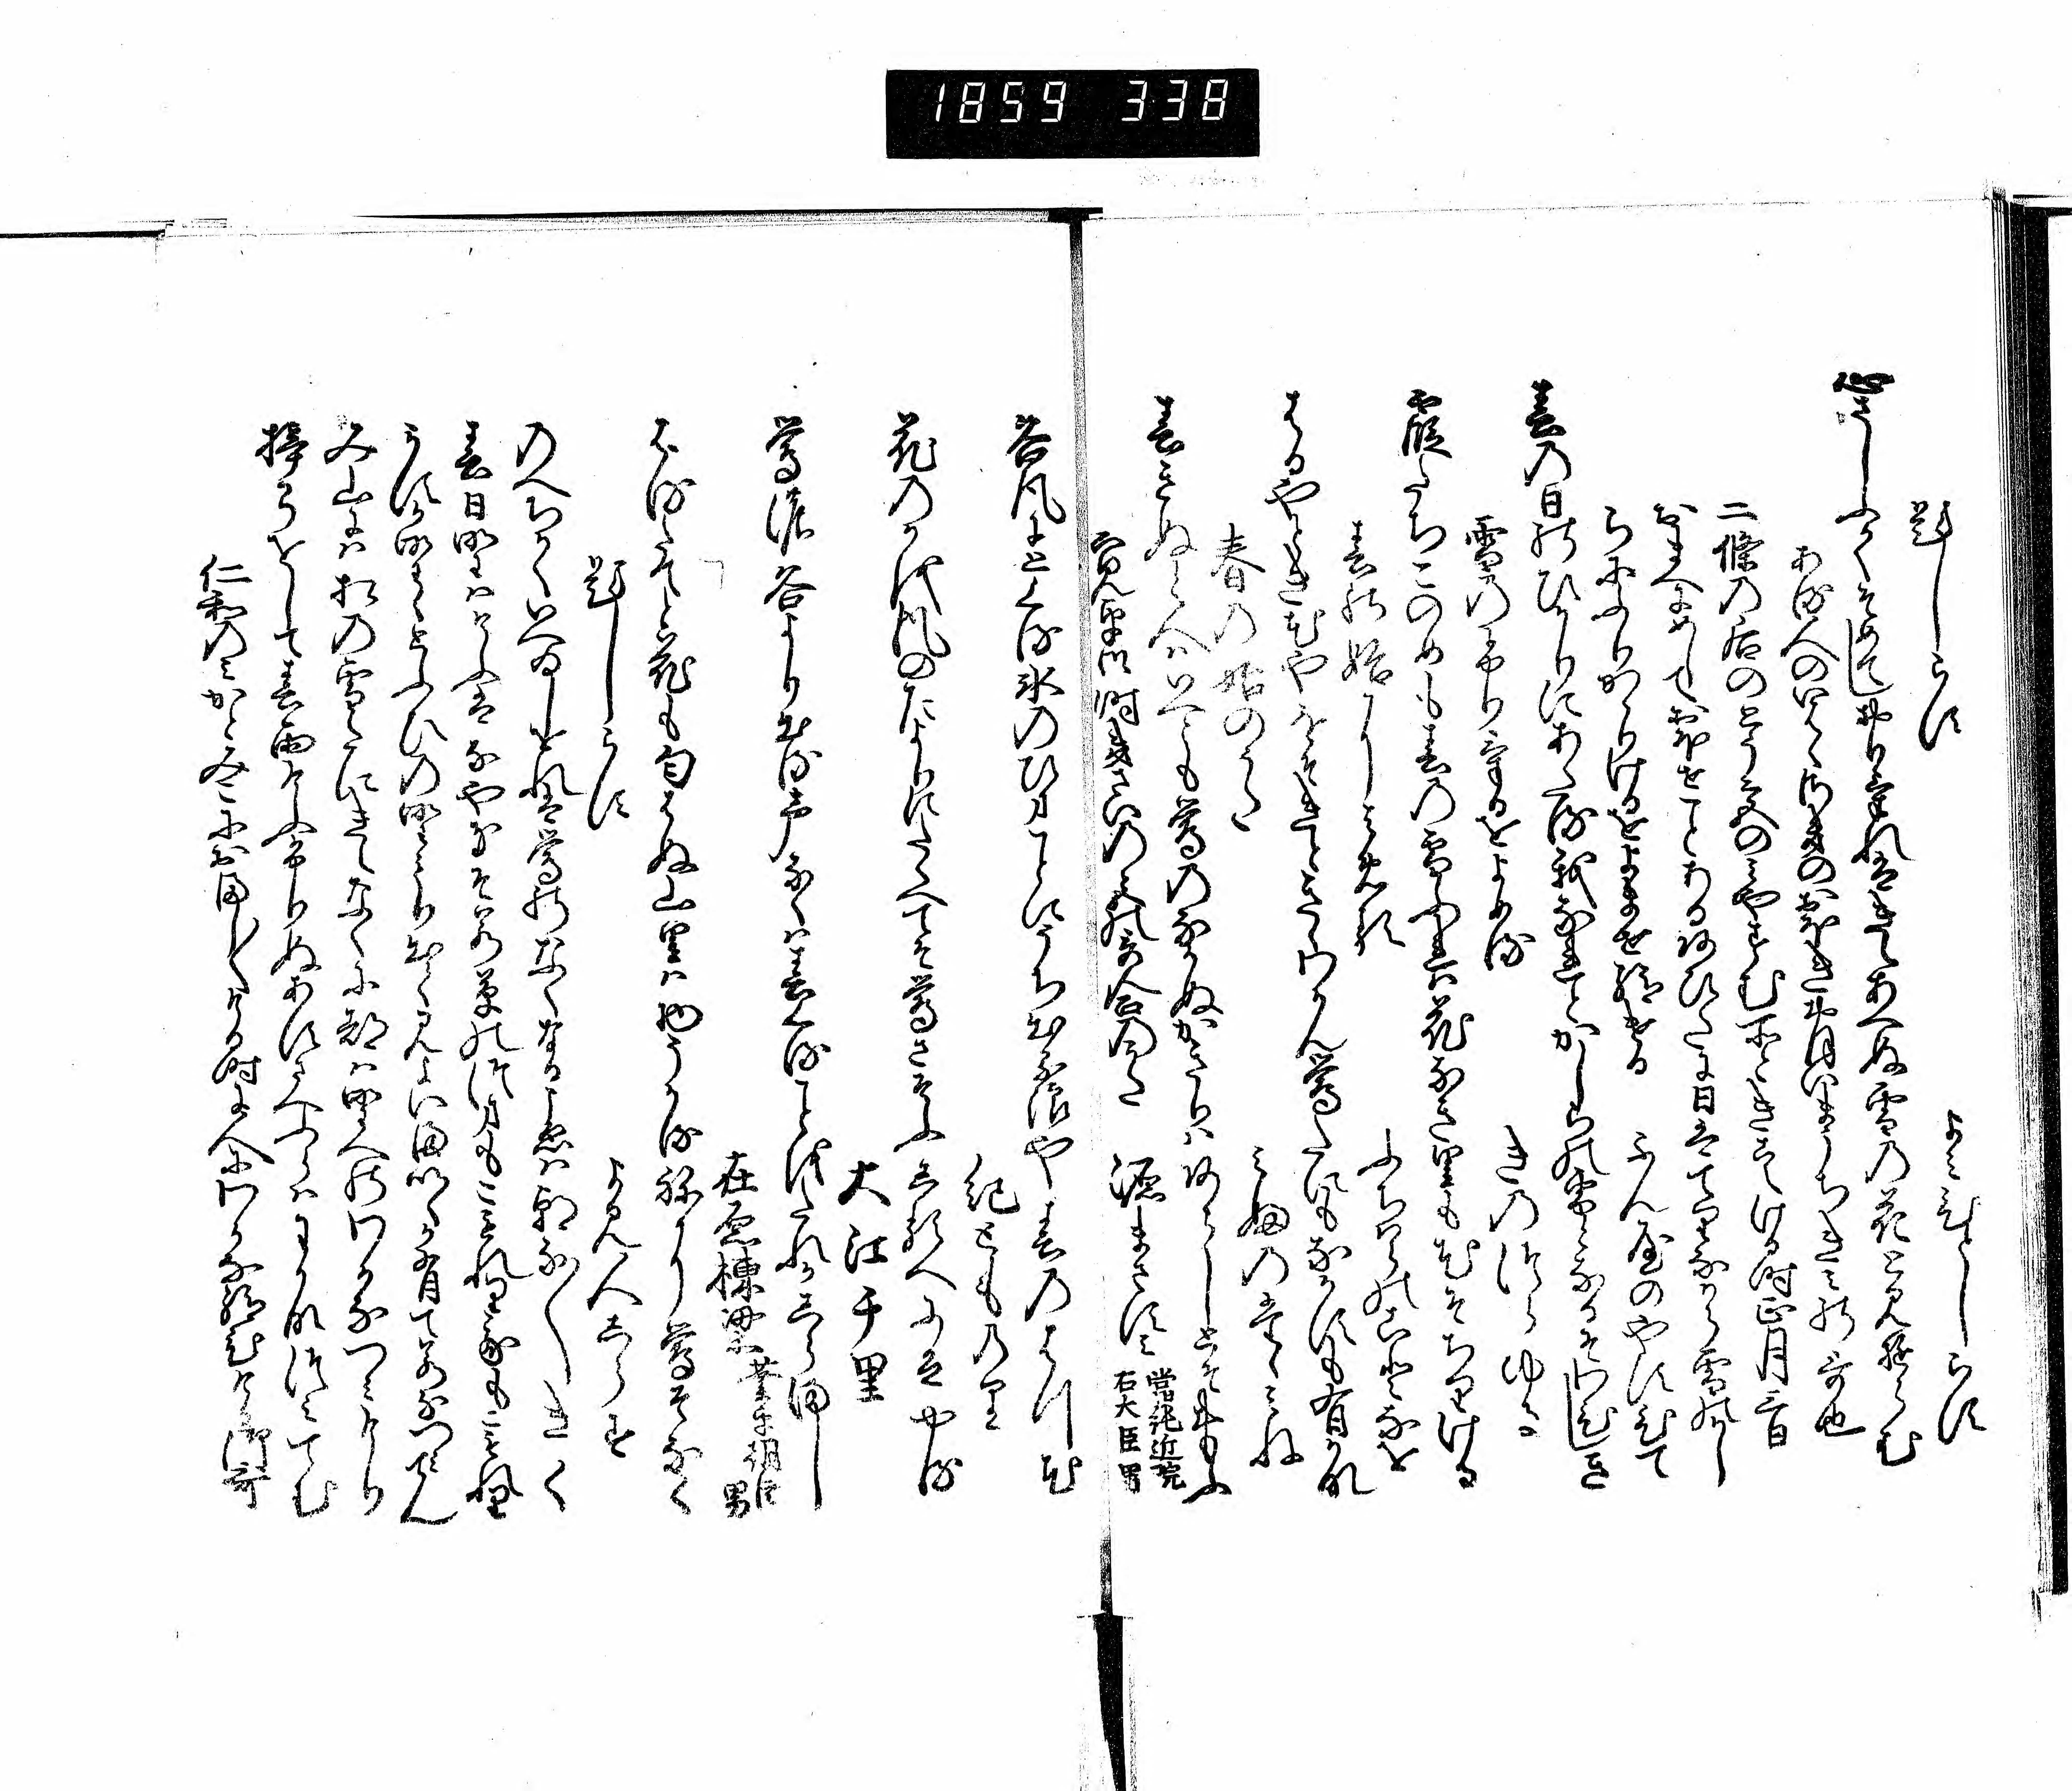 1859 338
題しらす　よみ人しらす
心さしふかくそめてしおりけれはきえあへぬ雪の花と見ゆらむ
ある人のいはくさきのおほきおほいまうちきみの哥也
二條の后のとう宮のみやすむ所ときこえける時正月三日
おまへにめしておほせことあるあひたに日はてりなから雪かし
らにふりかゝりけるをよませ給ける　ふん屋のやすひて
春の日のひかりにあたる我なれとかしらの雪となるそわひしき
雪のふりけるをよめる　きのつらゆき
霞たちこのめも春の雪ふれは花なき里も花そちりける
春の始によめる　ふちはらのことなを
はるやとき花やをそきときゝわかん鶯たにもなかすも有かな
春の始のうた　みふのたゝみね
春きぬと人はいへとも鶯のなかぬかきりはあらしとそおもふ
寛平御時きさいの宮の哥合のうた　源まさすみ 當純近院右大臣男
谷風にとくる氷のひまことにうち出る浪や春のはつ花
紀とものり
花のかを風のたよりにたくへてそ鶯さそふしるへにはやる
大江千里
鶯の谷より出る声なくは春くることをたれかしらまし
在原棟梁 業平朝臣男
春たてと花も匂はぬ山里は物うかるねに鶯そなく
題しらす　よみ人しらす
のへちかくいへゐしをれは鶯のなくなるこゑは朝な〱きく
春日野はけふはなやきそ若草のつまもこもれり我もこもれり
かすか野のとふひの野もり出て見よいまいくか有て若なつみてん
み山には松の雪たにきえなくに都は野への若なつみけり
梓弓をして春雨けふふりぬあすさへふらはわかなつみてむ
仁和のみかとみこにおまし〱ける時に人にわかな給ひける御哥